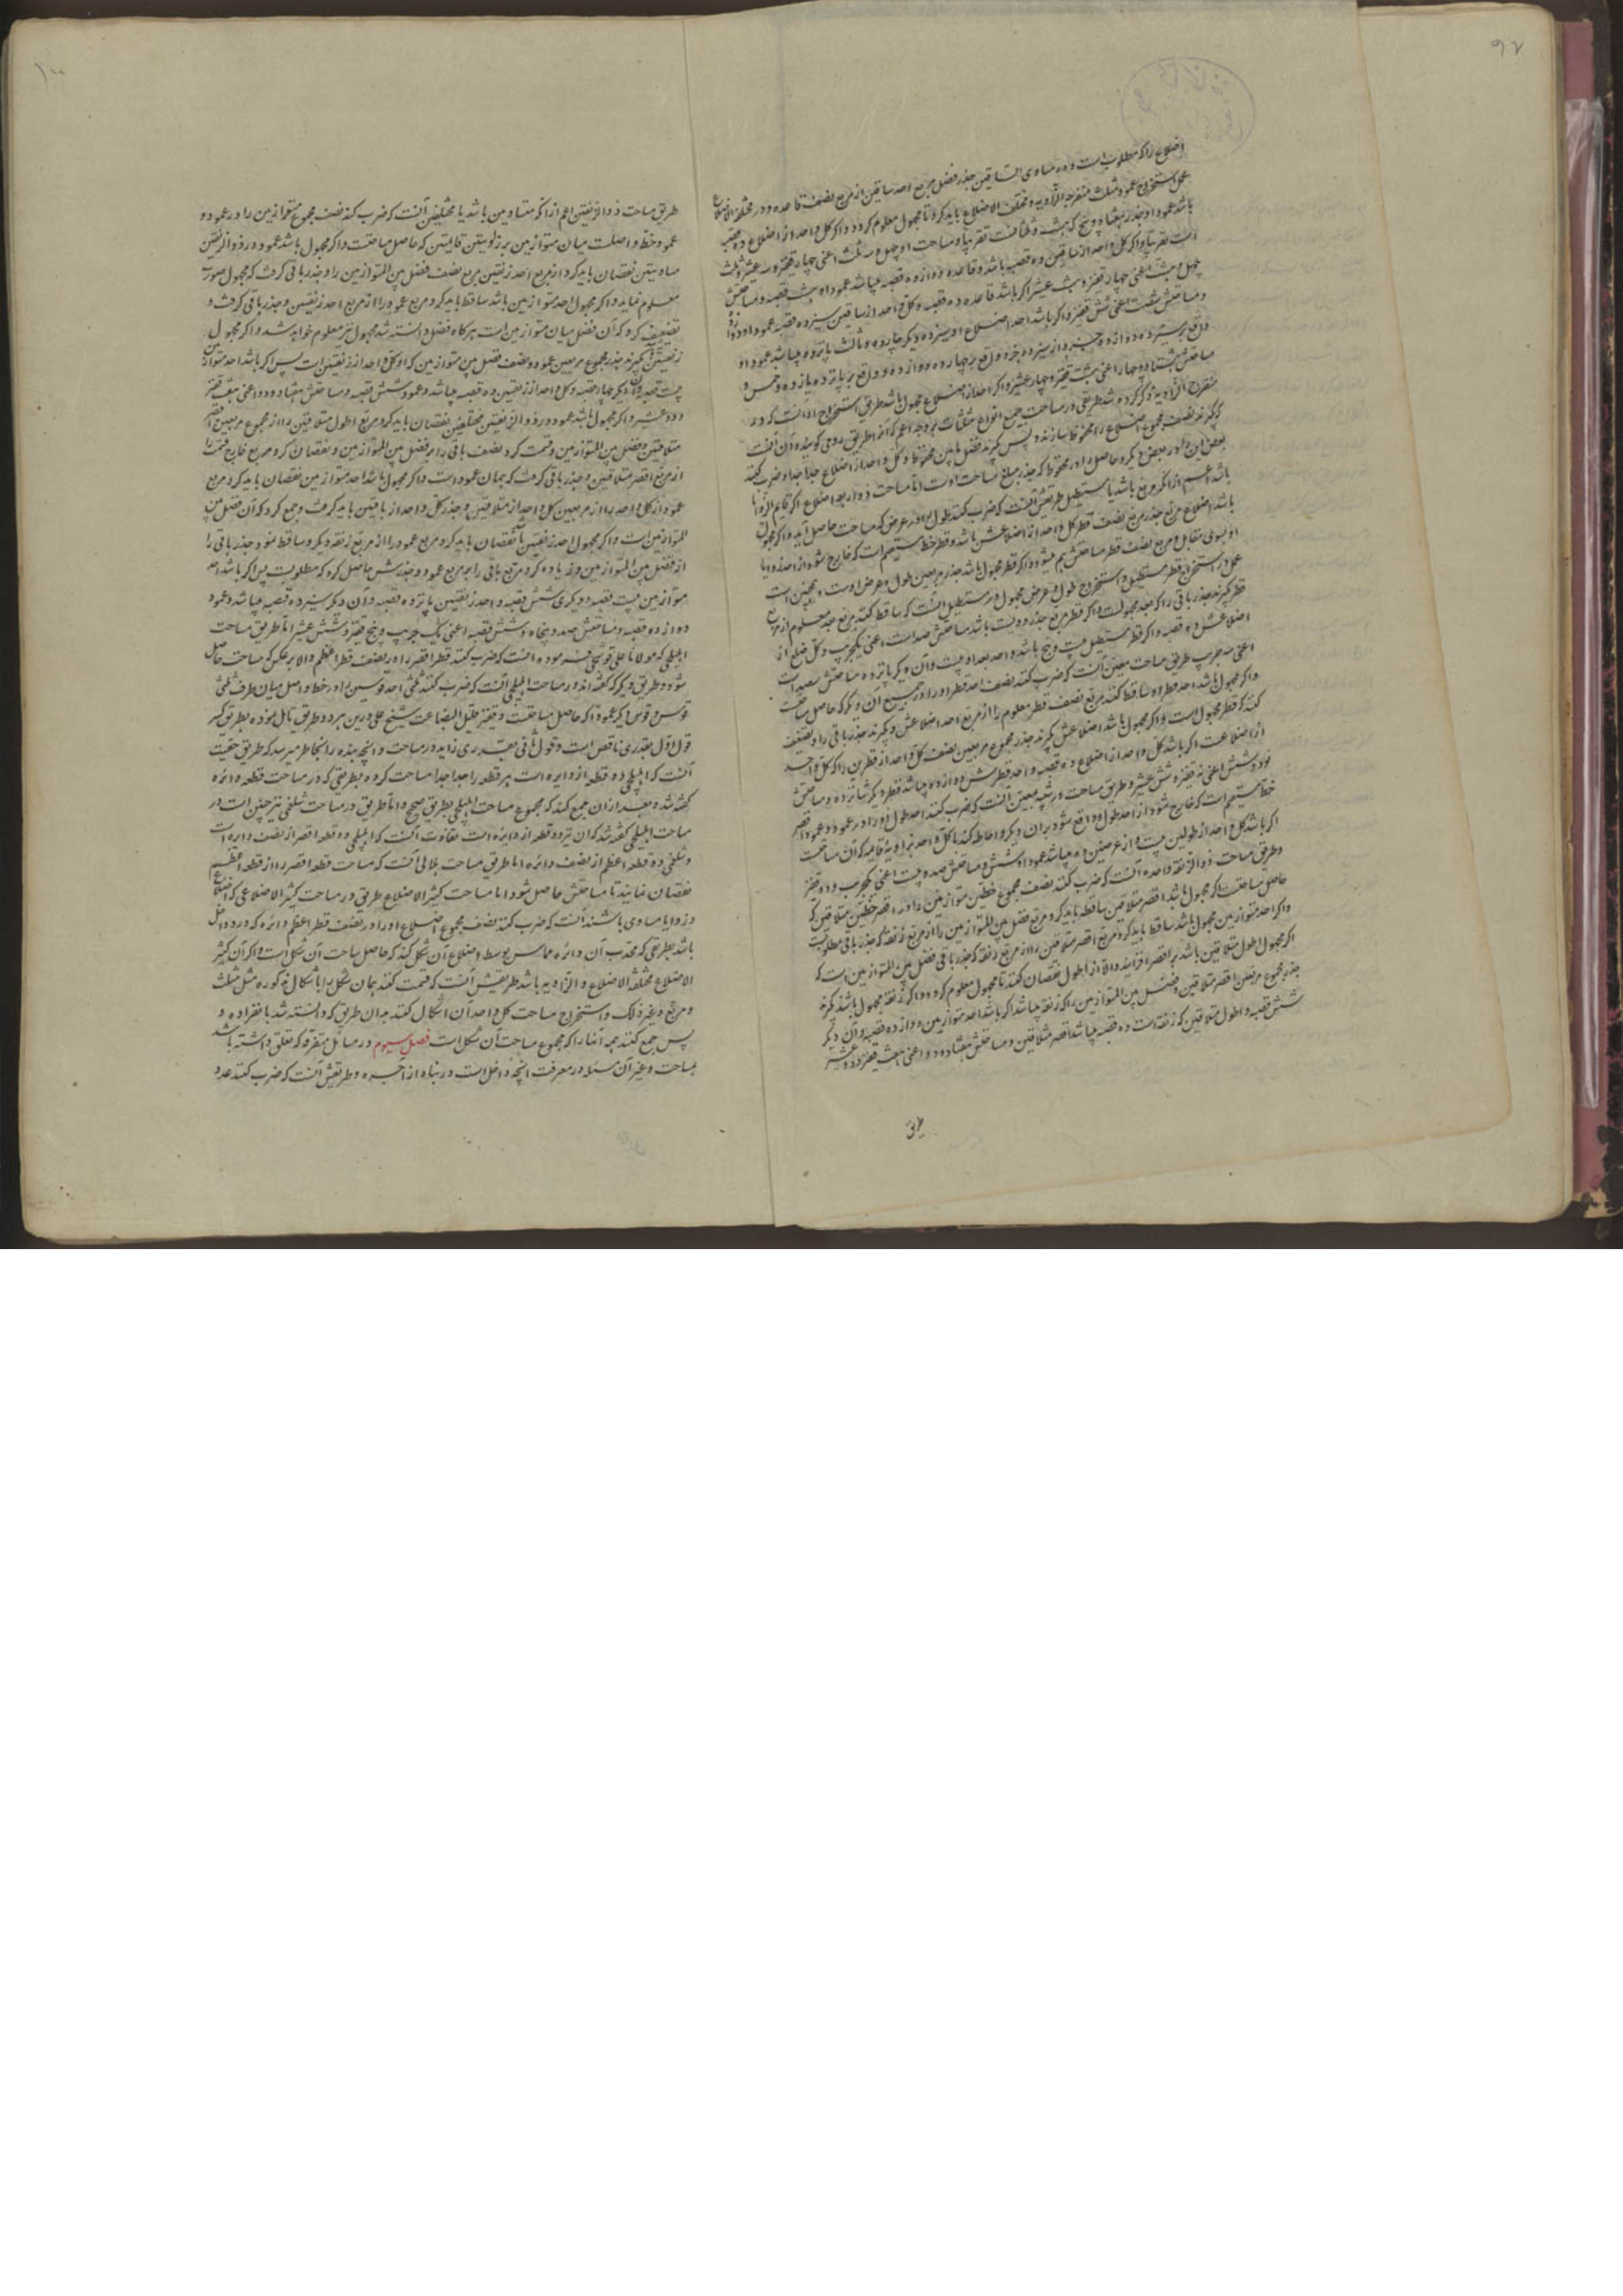 ۹۷
اضلاع را که مطلوب است و در متساوی الساقین جذر فضل مربع احد ساقین از مربع نصف قاعده و در مختلفة الاضلاع
عمل استخراج عمود مثلث منفرجه الزاویه و مختلف الاضلاع باید کرد تا مجهول معلوم کردد و اکر کل واحد از اضلاع ده قصبه
باشد عمود او جذر هفتاد و پنج که هشت و ثلثانست تقریبا و مساحت او چهل و سه ثلث اعنی چهار قفیز و سه عشیر و ثلث
است تقریبا و اکر کل واحد از ساقین ده قصبه باشد و قاعده دوازده قصبه میباشد عمود او هشت قصبه و مساحتش
چهل و هشت اعنی چهار قفیز و هشت عشیر اکر باشد قاعده ده قصبه و کل واحد از ساقین سیزده قصبه عمود او دوازده
و مساحتش شصت اعنی شش قفیز و اکر باشد احد اضلاع او سیزده و دیکر چارده و ثالث پانزده میباشد عمود او
واقع بر سیزده دوازده و از سیزده جزء و واقع بر چهارده دوازده و واقع بر پانزده یازده و خمس و
مساحتش هشتاد و چهار اعنی هشت قفیز و چهار عشیر و اکر احد از اضلاع مجهول باشد طریق استخراج او آنست که در
منفرج الزاویه ذکر کرده شد طریقی در مساحت جمیع انواع مثلثات بر وجه اعم که آنرا طریق رومی کویند و آن آنست
که کیرند نصف مجموع اضلاع را محفوظ سازند و پس کیرند فضل مابین محفوظ و کل واحد از اضلاع جدا جدا و ضرب کنند
بعض این را در بعض دیکر و حاصل را در محفوظ که جذر مبلغ مساحت اوست اما مساحت ذو اربعه اضلاع اکر قایم الزوایا
باشد اعم از آنکه مربع باشد یا مستطیل طریقش آنست که ضرب کنند طول را در عرض که مساحت حاصل آید و اکر مجهول
باشد اضلاع مربع جذر مربع نصف قطر کل واحد از اضلاعش باشد و قطر خط مستقیم است که خارج شود از احد زوایا
او بسوی مقابل و مربع نصف قطر مساحتش بیم میشود و اکر قطر مجهول باشد جذر مربعین طول و عرض اوست و همچنین است
عمل در استخراج قطر مستطیل و استخراج طول و عرض مجهول در مستطیل آنست که ساقط کنند مربع بعد معلوم از مربع
قطر کیرند جذر باقی را که بعد مجهولست و اکر قطر مربع جذر دویست باشد مساحتش صد است اعنی یکجریب و کل ضلع از
اضلاعش ده قصبه و اکر قطر مستطیل بیست و پنج باشد و احد بعد او بیست و آن دیکر پانزده مساحتش سیصد است
اعنی سه جریب طریق مساحت معین آنست که ضرب کنند نصف احد قطر او را در جمیع آن دیکر که حاصل مساحتست
و اکر مجهول باشد احد قطر او ساقط کنند مربع نصف قطر معلوم را از مربع احد اضلاعش و بکیرند جذر باقی را و تضعیف
کنند که قطر مجهول است و اکر مجهول باشد اضلاعش کیرند جذر مجموع مربعین نصف کل واحد از قطرین را که کل واحد
از اضلاعست اکر باشد کل واحد از اضلاع ده قصبه و احد قطرش دوازده میباشد قطر دیکر شانزده و مساحتش
نود و شش اعنی نه قفیز و شش عشیر و طریق مساحت در شبیه بمعین آنست که ضرب کنند احد طول او را در عمود و عمود او قصیر
خط مستقیم است که خارج شود از احد طول و واقع شود بر آن دیکر و احاطه کند با کل واحد بزاویه قایمه که آن مساحت
اکر باشد کل واحد از طولین بیست و از عرضین ده میباشد عمود او شش و مساحتش صد و بیست اعنی یکجریب و دو قفیز
و طریق مساحت ذو الزنقه واحده آنست که ضرب کنند نصف مجموع خطین متوازیین را در اقصر خطین متلاقیین که
حاصل مساحتست اکر مجهول باشد اقصر متلاقیین ساقط باید کرد مربع فضل بین المتوازیین را از مربع زنقه که جذر باقی مطلوبست
و اکر احد متوازیین مجهول باشد ساقط باید کرد مربع اقصر متلاقیین را از مربع زنقه که جذر باقی فضل بین المتوازیین است که
اکر مجهول اطول متلاقیین باشد بر اقصر افزایند و الا از اطول نقصان کنند تا مجهول معلوم کردد و اکر زنقه مجهول باشد کیرند
جذر مجموع مربعین اقصر متلاقیین و فضل بین المتوازیین را که زنقه میباشد اکر باشد احد متوازیین دوازده قصبه و آن دیکر
شش قصبه و اطول متلاقیین که زنقه است ده قصبه میباشد اقصر متلاقیین و مساحتش هفتاد و دو اعنی هفت قفیز و دو عشیر
طریق
۱۰۰
طریق مساحت ذو الزنقتین اعم از آنکه متساویین باشد یا مختلفین آنست که ضرب کنند نصف مجموع متوازیین را در عمود و
عمود خط واصلست میان متوازیین بر زاویتین قایمتین که حاصل مساحتست و اکر مجهول باشد عمود در ذو الزنقتین
متساویتین نقصان باید کرد از مربع احد زنقتین مربع نصف فضل بین المتوازیین را و جذر باقی کرفت که مجهول صورت
معلوم نماید و اکر مجهول احد متوازیین باشد ساقط باید کرد مربع عمود را از مربع احد زنقتین و جذر باقی کرفت و
تضعیف کرد که آن فضل میان متوازیین است هرکاه فضل دانسته شد مجهول نیز معلوم خواهد شد و اکر مجهول
زنقتین کیرند جذر مجموع مربعین عمود و نصف فضل بین متوازیین که او کل واحد از زنقتین است پس اکر باشد احد متوازیین
بیست قصبه و آن دیکر چهار قصبه و کل واحد از زنقتین ده قصبه میباشد و عمود شش قصبه و مساحتش هفتاد و دو اعنی هفت قفیز
و دو عشیر و اکر مجهول باشد عمود در ذو الزنقتین مختلفین نقصان باید کرد مربع اطول متلاقیین را از مجموع مربعین اقصر
متلاقیین و فضل بین المتوازیین و قسمت کرد نصف باقی را بر فضل بین المتوازیین و نقصان کرد مربع خارج قسمت را
از مربع اقصر متلاقیین و جذر باقی کرفت که همان عمود است و اکر مجهول باشد احد متوازیین نقصان باید کرد مربع
عمود از کل واحد را از مربعین کل واحد از متلاقیین و جذر کل واحد از باقیین باید کرفت و جمع کرد که آن فضل بین
المتوازیین است و اکر مجهول احد زنقتین باشد نقصان باید کرد مربع عمود را از مربع زنقه دیکر و ساقط نمود جذر باقی را
از فضل بین المتوازیین و زیاده کرد مربع باقی را بر مربع عمود و جذرش حاصل کرد که مطلوبست پس اکر باشد احد
متوازیین بیست قصبه و دیکری شش قصبه و احد زنقتین پانزده قصبه و آن دیکر سیزده قصبه میباشد و عمود
دوازده قصبه و مساحتش صد و پنجاه و شش قصبه اعنی یک جریب و پنج قفیز و شش عشیر اما طریق مساحت
اهلیلجی که مولانا علی قوشچی فرموده آنست که ضرب کنند قطر اقصر را در نصف قطر اعظم و الا بر عکس که مساحت حاصل
شود و طریق دیکر که کفته اند در مساحت اهلیلجی آنست که ضرب کنند ثلثی احد قوسین را در خط واصل میان طرف ثلثی
قوس و قوس دیکر عمودا که حاصل مساحتست و فقیر قلیل البضاعت شیخ علی درین هر دو طریق تامل نموده بطریق که
قول اول بقدری ناقص است و قول ثانی بقدری زاید در مساحت و آنچه بنده را بخاطر میرسد که طریق حقیقت
آنست که اهلیلجی دو قطعه از دایره است هر قطعه را جدا جدا مساحت کرده بطریقی که در مساحت قطعه دایره
کفته شد و بعد از آن جمع کنند که مجموع مساحت اهلیلجی بطریق صحیح و اما طریق در مساحت شلغمی نیز چنین است در
مساحت اهلیلجی کفته شد که آن نیز دو قطعه از دایره است تفاوت آنست که اهلیلجی دو قطعه اقصر از نصف دایره است
و شلغمی دو قطعه اعظم از نصف دایره اما طریق مساحت هلالی آنست که مساحت قطعه اقصر را از قطعه اعظم
نقصان نمایند تا مساحتش حاصل شود اما مساحت کثیر الاضلاع طریق در مساحت کثیر الاضلاعی که اضلاع
و زوایا مساوی باشند آنست که ضرب کنند نصف مجموع اضلاع او را در نصف قطر اعظم دایره که در و داخل
باشد بطریقی که محدب آن دایره مماس بوسط اضلاع آن شکل کند که حاصل مساحت آن شکل است و اکر آن کثیر
الاضلاع مختلفة الاضلاع و الزاویه باشد طریقش آنست که قسمت کنند همان شکل را باشکال مذکوره مثل مثلث
و مربع و غیر ذلک و استخراج مساحت کل واحد آن اشکال کنند بدان طریق که دانسته شد بانفراده و
پس جمع کنند همه آنها را که مجموع مساحت آن شکل است فصل سیوم در مسائل متفرقه که تعلق داشته باشد
بمساحت و غیر آن مسئله در معرفت آنچه داخل است در بناه از آجره و طریقش آنست که ضرب کنند عدد